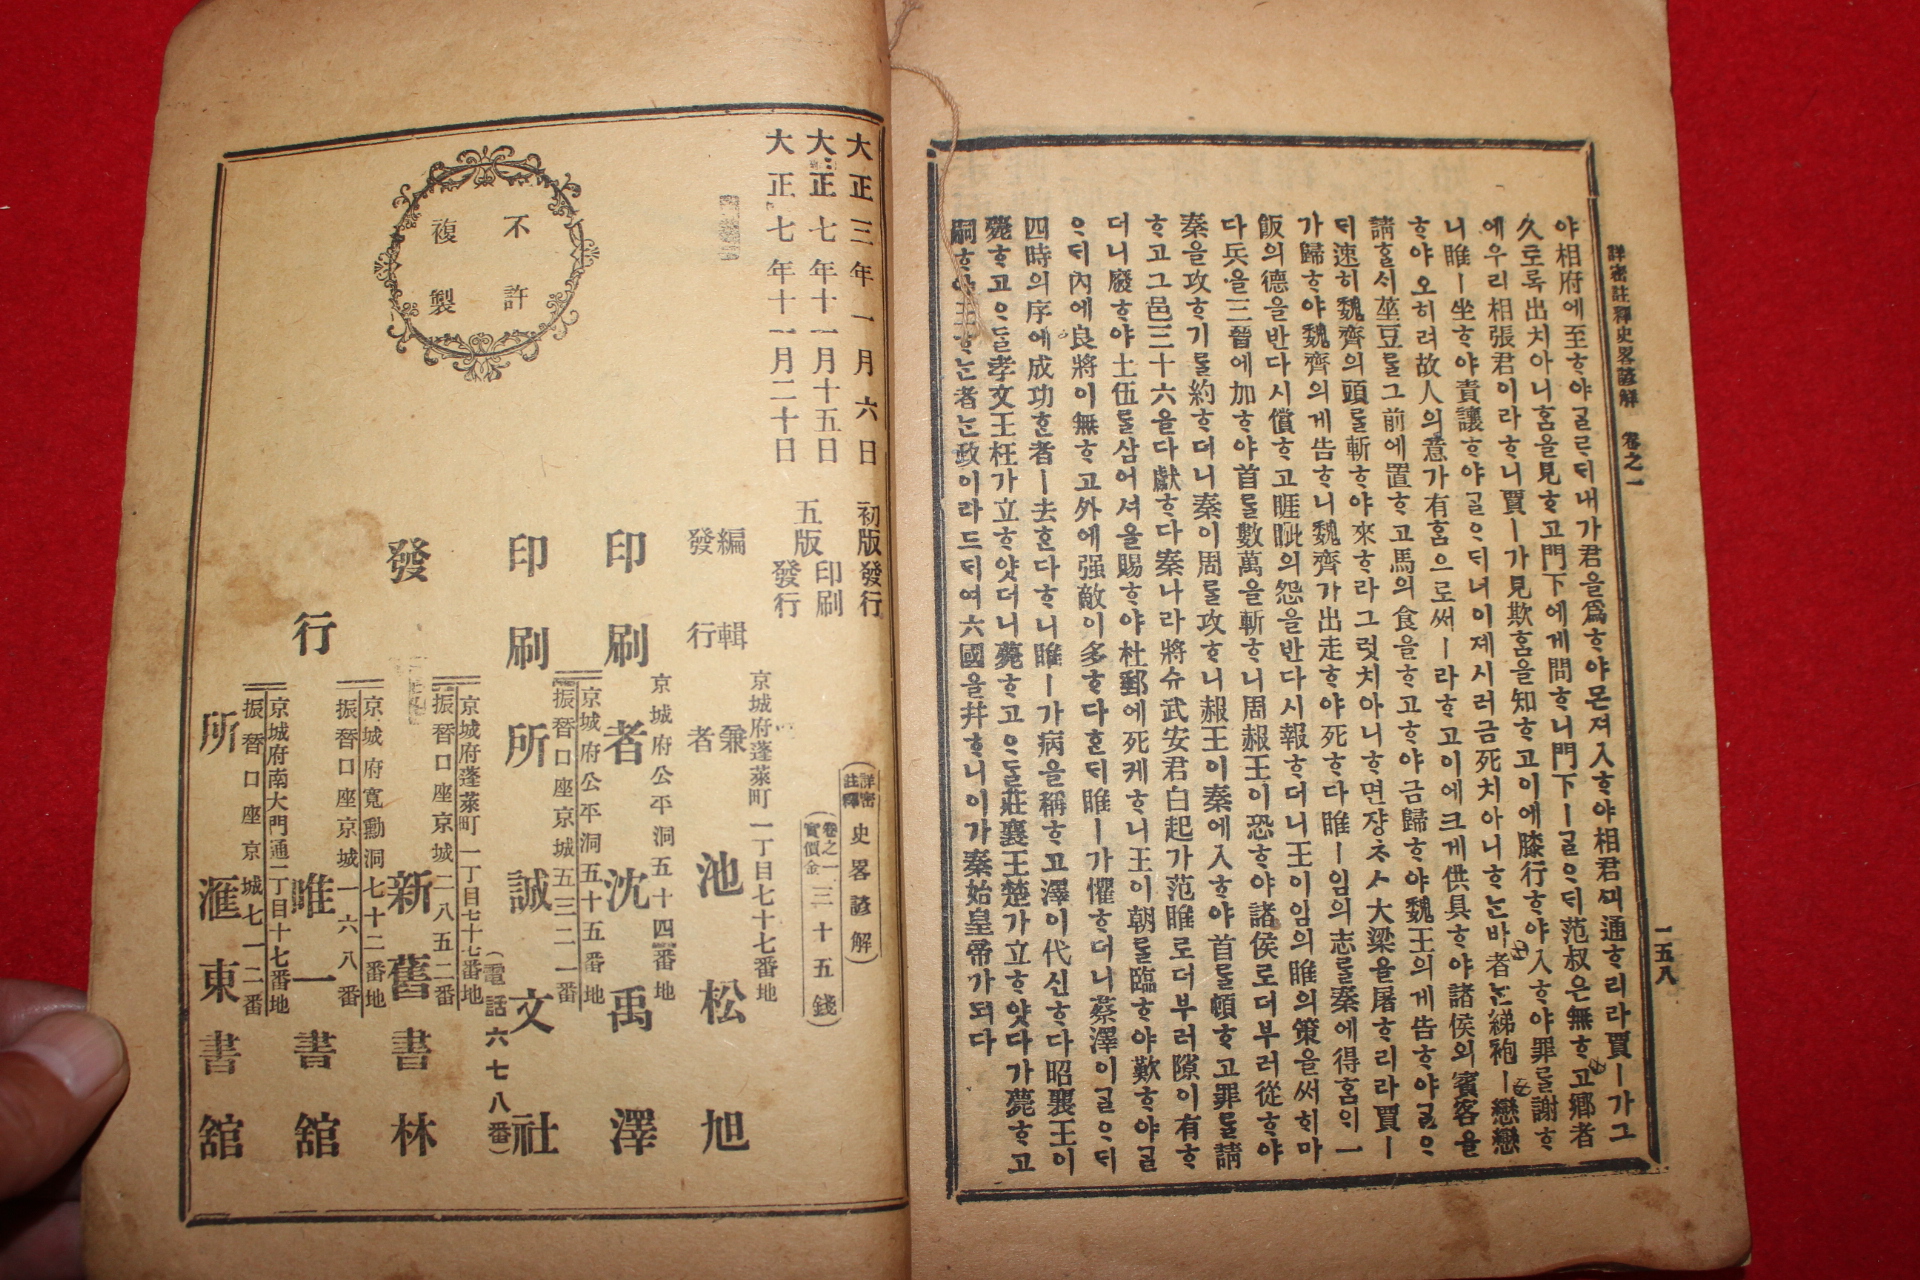 詳密註釋史畧諺解 卷之一
一五八
야相府에至ᄒᆞ야ᄀᆞᆯᄋᆞᄃᆡ내가君을爲ᄒᆞ야몬져入ᄒᆞ야相君ᄭᅴ通ᄒᆞ리라賈ㅣ가그
久토록出치아니홈을見ᄒᆞ고門下에게問ᄒᆞ니門下ㅣᄀᆞᆯᄋᆞᄃᆡ范叔은無ᄒᆞ고鄕者
에우리相張君이라ᄒᆞ니賈ㅣ가見欺홈을知ᄒᆞ고이에膝行ᄒᆞ야入ᄒᆞ야罪ᄅᆞᆯ謝ᄒᆞ
니睢ㅣ坐ᄒᆞ야責讓ᄒᆞ야ᄀᆞᆯᄋᆞᄃᆡ너이제시러금死치아니ᄒᆞᄂᆞᆫ바者ᄂᆞᆫ綈袍ㅣ戀戀
ᄒᆞ야오히려故人의意가有홈으로써ㅣ라ᄒᆞ고이에크게供具ᄒᆞ야諸侯의賓客을
請ᄒᆞᆯᄉᆡ莝豆ᄅᆞᆯ그前에置ᄒᆞ고馬의食을ᄒᆞ고ᄒᆞ야금歸ᄒᆞ야魏王의게告ᄒᆞ야ᄀᆞᆯᄋᆞ
ᄃᆡ速히魏齊의頭ᄅᆞᆯ斬ᄒᆞ야來ᄒᆞ라그럿치아니ᄒᆞ면쟝ᄎᆞᆺ大梁을屠ᄒᆞ리라賈ㅣ
가歸ᄒᆞ야魏齊의게告ᄒᆞ니魏齊가出走ᄒᆞ야死ᄒᆞ다睢ㅣ임의志ᄅᆞᆯ秦에得홈ᄋᆡ一
飯의德을반다시償ᄒᆞ고睚眦의怨을반다시報ᄒᆞ더니王이임의睢의策을써히마
다兵을三晉에加ᄒᆞ야首ᄅᆞᆯ數萬을斬ᄒᆞ니周赧王이恐ᄒᆞ야諸侯로더부러從ᄒᆞ야
秦을攻ᄒᆞ기ᄅᆞᆯ約ᄒᆞ더니秦이周ᄅᆞᆯ攻ᄒᆞ니赧王이秦에入ᄒᆞ야首ᄅᆞᆯ頓ᄒᆞ고罪ᄅᆞᆯ請
ᄒᆞ고그邑三十六을다獻ᄒᆞ다秦나라將슈武安君白起가范睢로더부러隙이有ᄒᆞ
더니廢ᄒᆞ야士伍ᄅᆞᆯ삼어셔을賜ᄒᆞ야杜郵에死케ᄒᆞ니王이朝ᄅᆞᆯ臨ᄒᆞ야歎ᄒᆞ야ᄀᆞᆯ
ᄋᆞᄃᆡ內에良將이無ᄒᆞ고外에强敵이多ᄒᆞ다ᄒᆞᆫᄃᆡ睢ㅣ가懼ᄒᆞ더니蔡澤이ᄀᆞᆯᄋᆞᄃᆡ
四時의序에成功ᄒᆞᆫ者ㅣ去ᄒᆞᆫ다ᄒᆞ니睢ㅣ가病을稱ᄒᆞ고澤이代신ᄒᆞ다昭襄王이
薨ᄒᆞ고ᄋᆞᄃᆞᆯ孝文王柱가立ᄒᆞ얏더니薨ᄒᆞ고ᄋᆞᄃᆞᆯ莊襄王楚가立ᄒᆞ얏다가薨ᄒᆞ고
嗣ᄒᆞ야王ᄒᆞᄂᆞᆫ者ᄂᆞᆫ政이라드ᄃᆡ여六國을幷ᄒᆞ니이가秦始皇帝가되다
大正三年一月六日 初版發行
大正七年十一月十五日 五版印刷
大正七年十一月二十日 發行
不許
複製
詳密註釋 史畧諺解
卷之一 實價金 三十五錢
京城府蓬萊町一丁目七十七番地
編輯兼發行者 池松旭
京城府公平洞五十四番地
印刷者 沈禹澤
京城府公平洞五十五番地
振替口座京城五三二一番
印刷所 誠文社
(電話六七八番)
京城府蓬萊町一丁目七十七番地
振替口座京城二八五二番
發行所
新舊書林
京城府寬勳洞七十二番地
振替口座京城一六八番
唯一書館
京城府南大門通二丁目十七番地
振替口座京城七一二番
滙東書館